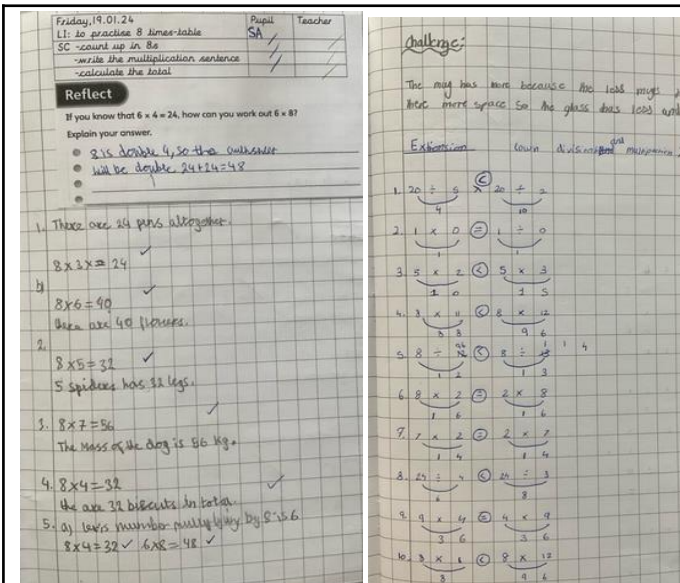 Friday, 19.01.24 Pupil Teacher
LI: to practise 8 times-table SA
SC -count up in 8s
-write the multiplication sentence
-calculate the total
Reflect
If you know that 6 × 4 = 24, how can you work out 6 × 8?
Explain your answer.
8 is double 4, so the
will be double 24+24=48
1. There are 24 pens altogether.
8×3 = 24
b)
8×6=40
there are 40 flowers.
2.
8×5=32
5 spiders has 32 legs.
3. 8×7=56
The mass of the dog is 56 kg.
4. 8×4=32
the are 32 biscuits in total.
5. a) number by 8 is 6
8×4=32 6×8=48
Challenge:
The mug has more because the less mugs
there more space so the glass has less and
Extension (own division and
1. 20 ÷ 5 < 20 ÷ 2
4 10
2. 1 × 0 = 1 ÷ 0
1 1
3. 5 × 2 < 5 × 3
1 0 1 5
4. 8 × 11 < 8 × 12
8 8 9 6
5. 8 ÷ < 8 ÷
1 2 1 3
6. 8 × 2 = 2 × 8
1 6 1 6
7. 7 × 2 = 2 × 7
1 4 1 4
8. 24 ÷ 4 < 24 ÷ 3
6 8
9. 9 × 4 = 4 × 9
3 6 3 6
10. 8 × 1 < 8 × 12
8 9 6